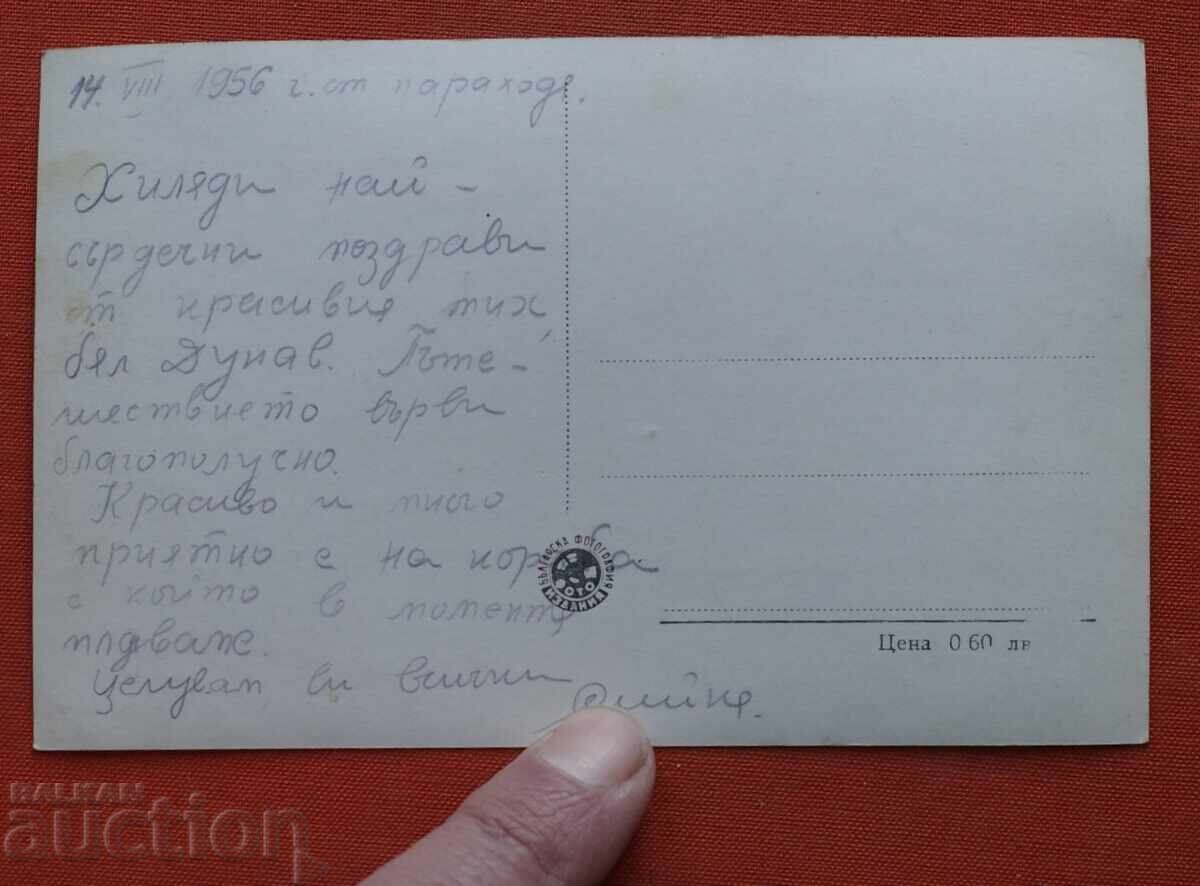 14. VIII 1956 г. от парахода.
Хиляди най -
сърдечни поздрави
от красивия тих
бял Дунав. Пъте-
шествието върви
благополучно.
Красиво и много
приятно е на кораба
с който в момента
плаваме.
Целувам ви всички
БЪЛГАРСКА ФОТОГРАФИЯ
ФОТО
ИЗДАНИЯ
Цена 0 60 лв
BALKAN
auction